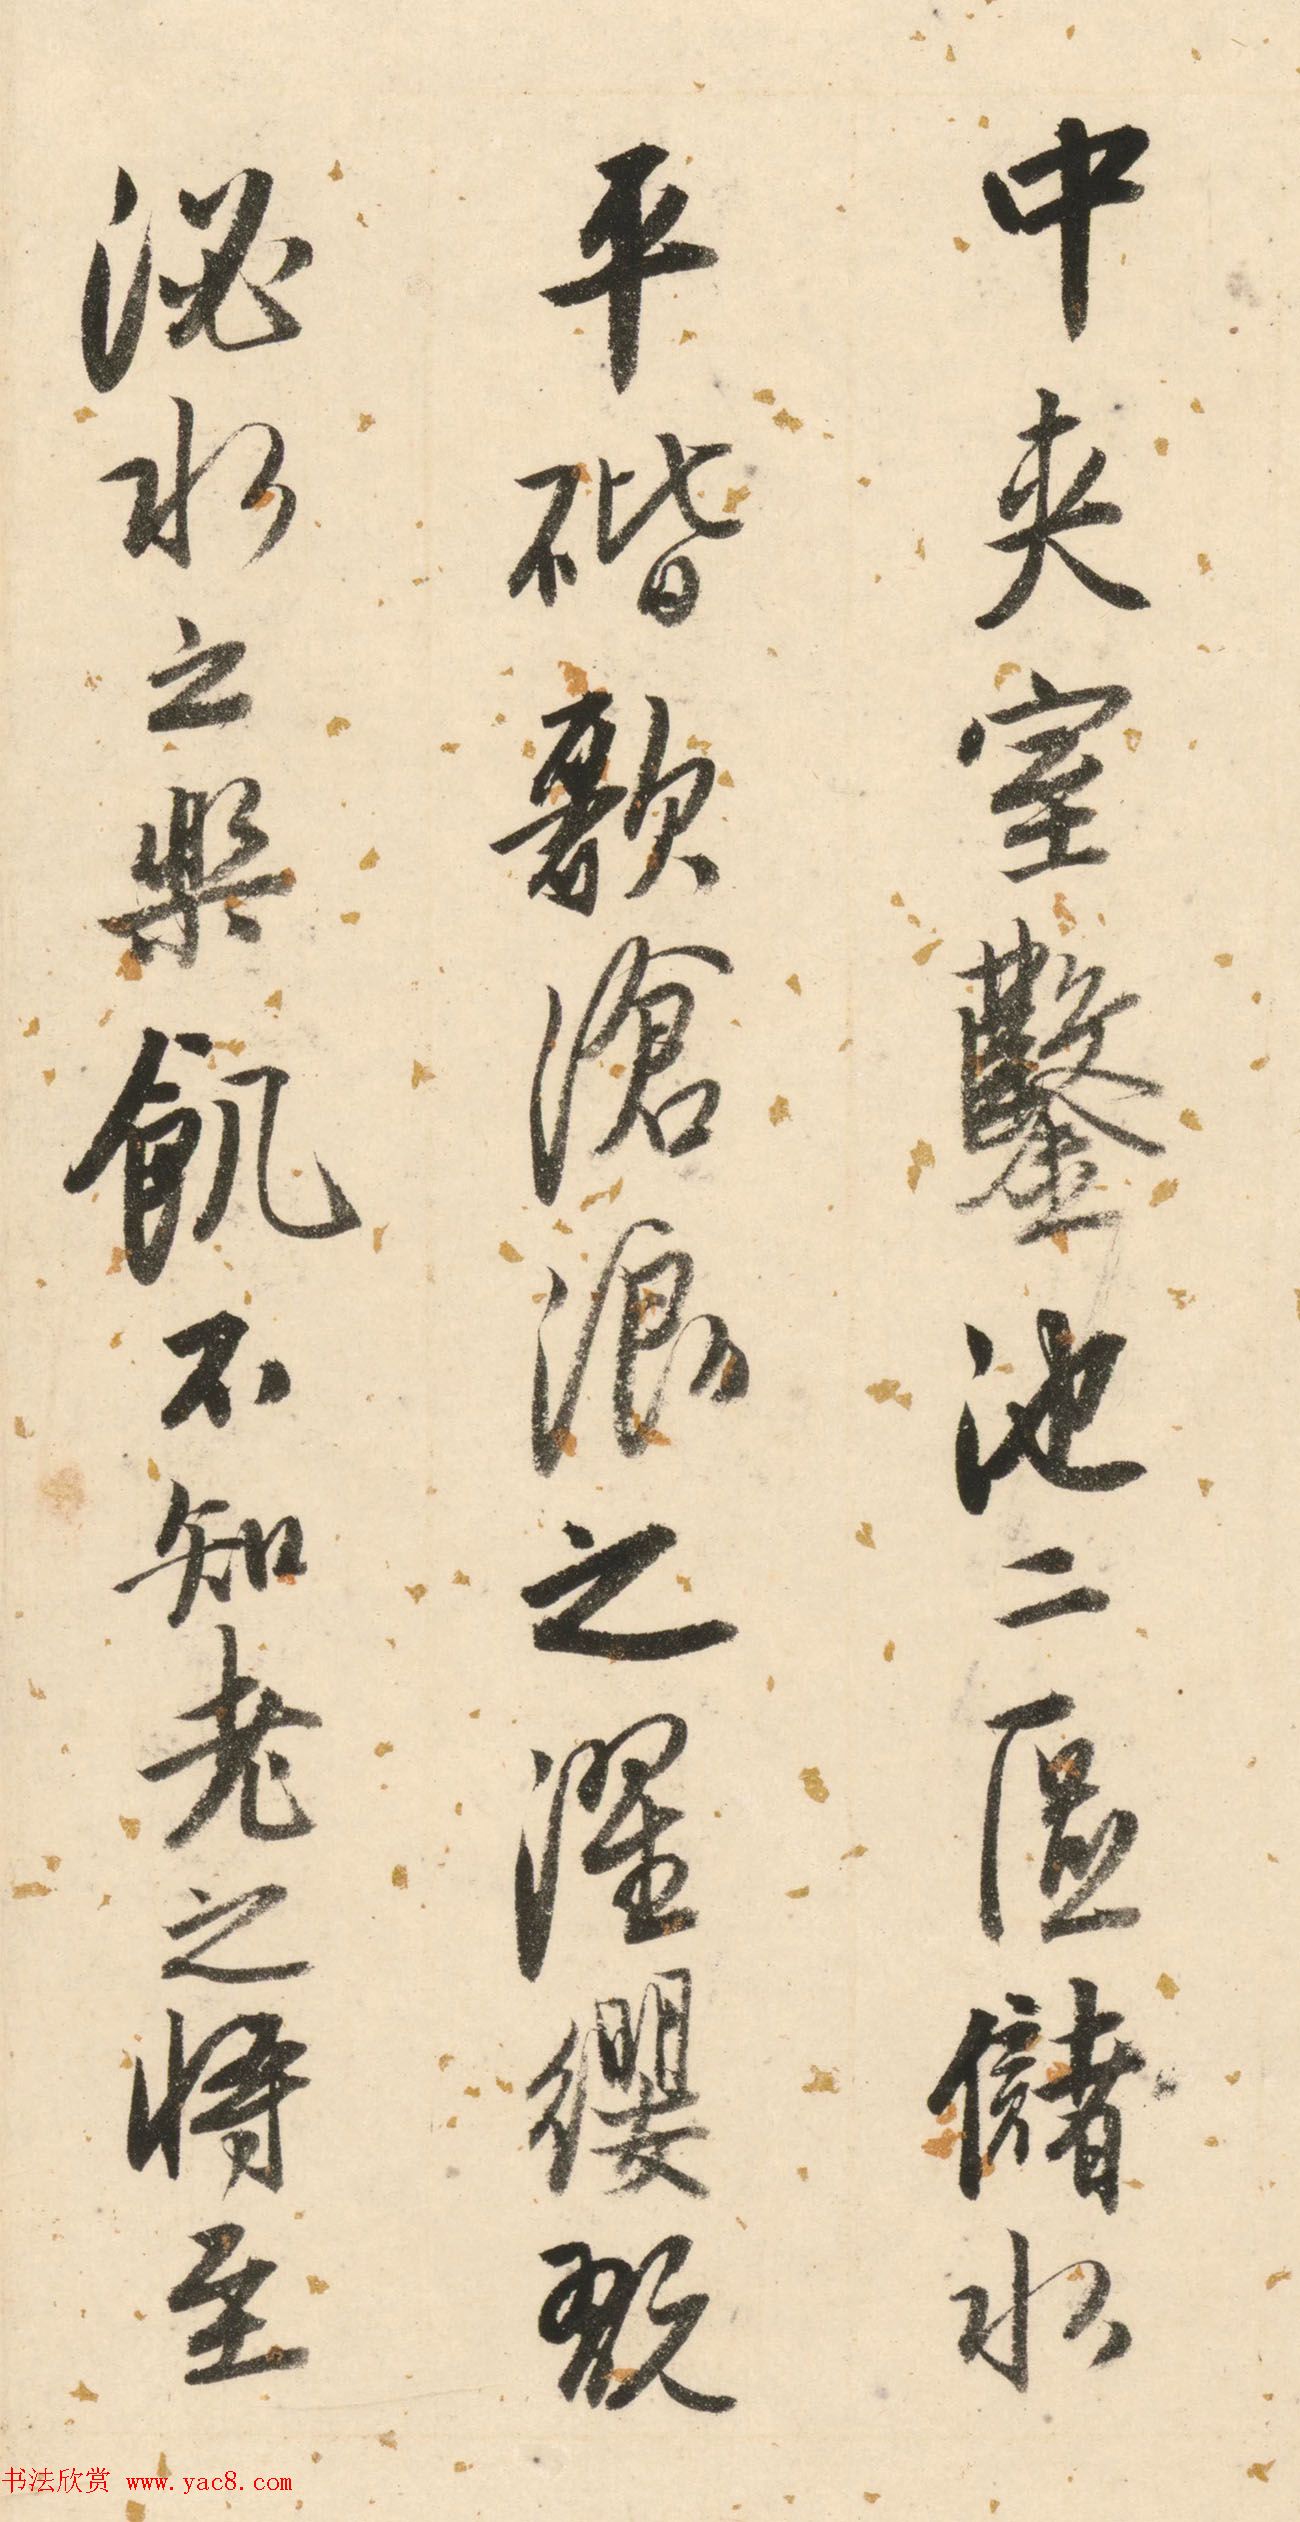 中夾室鑿池二區儲水
平碏歌滄浪之濯纓既
泌水之樂飢不知老之將至
书法欣赏 www.yac8.com